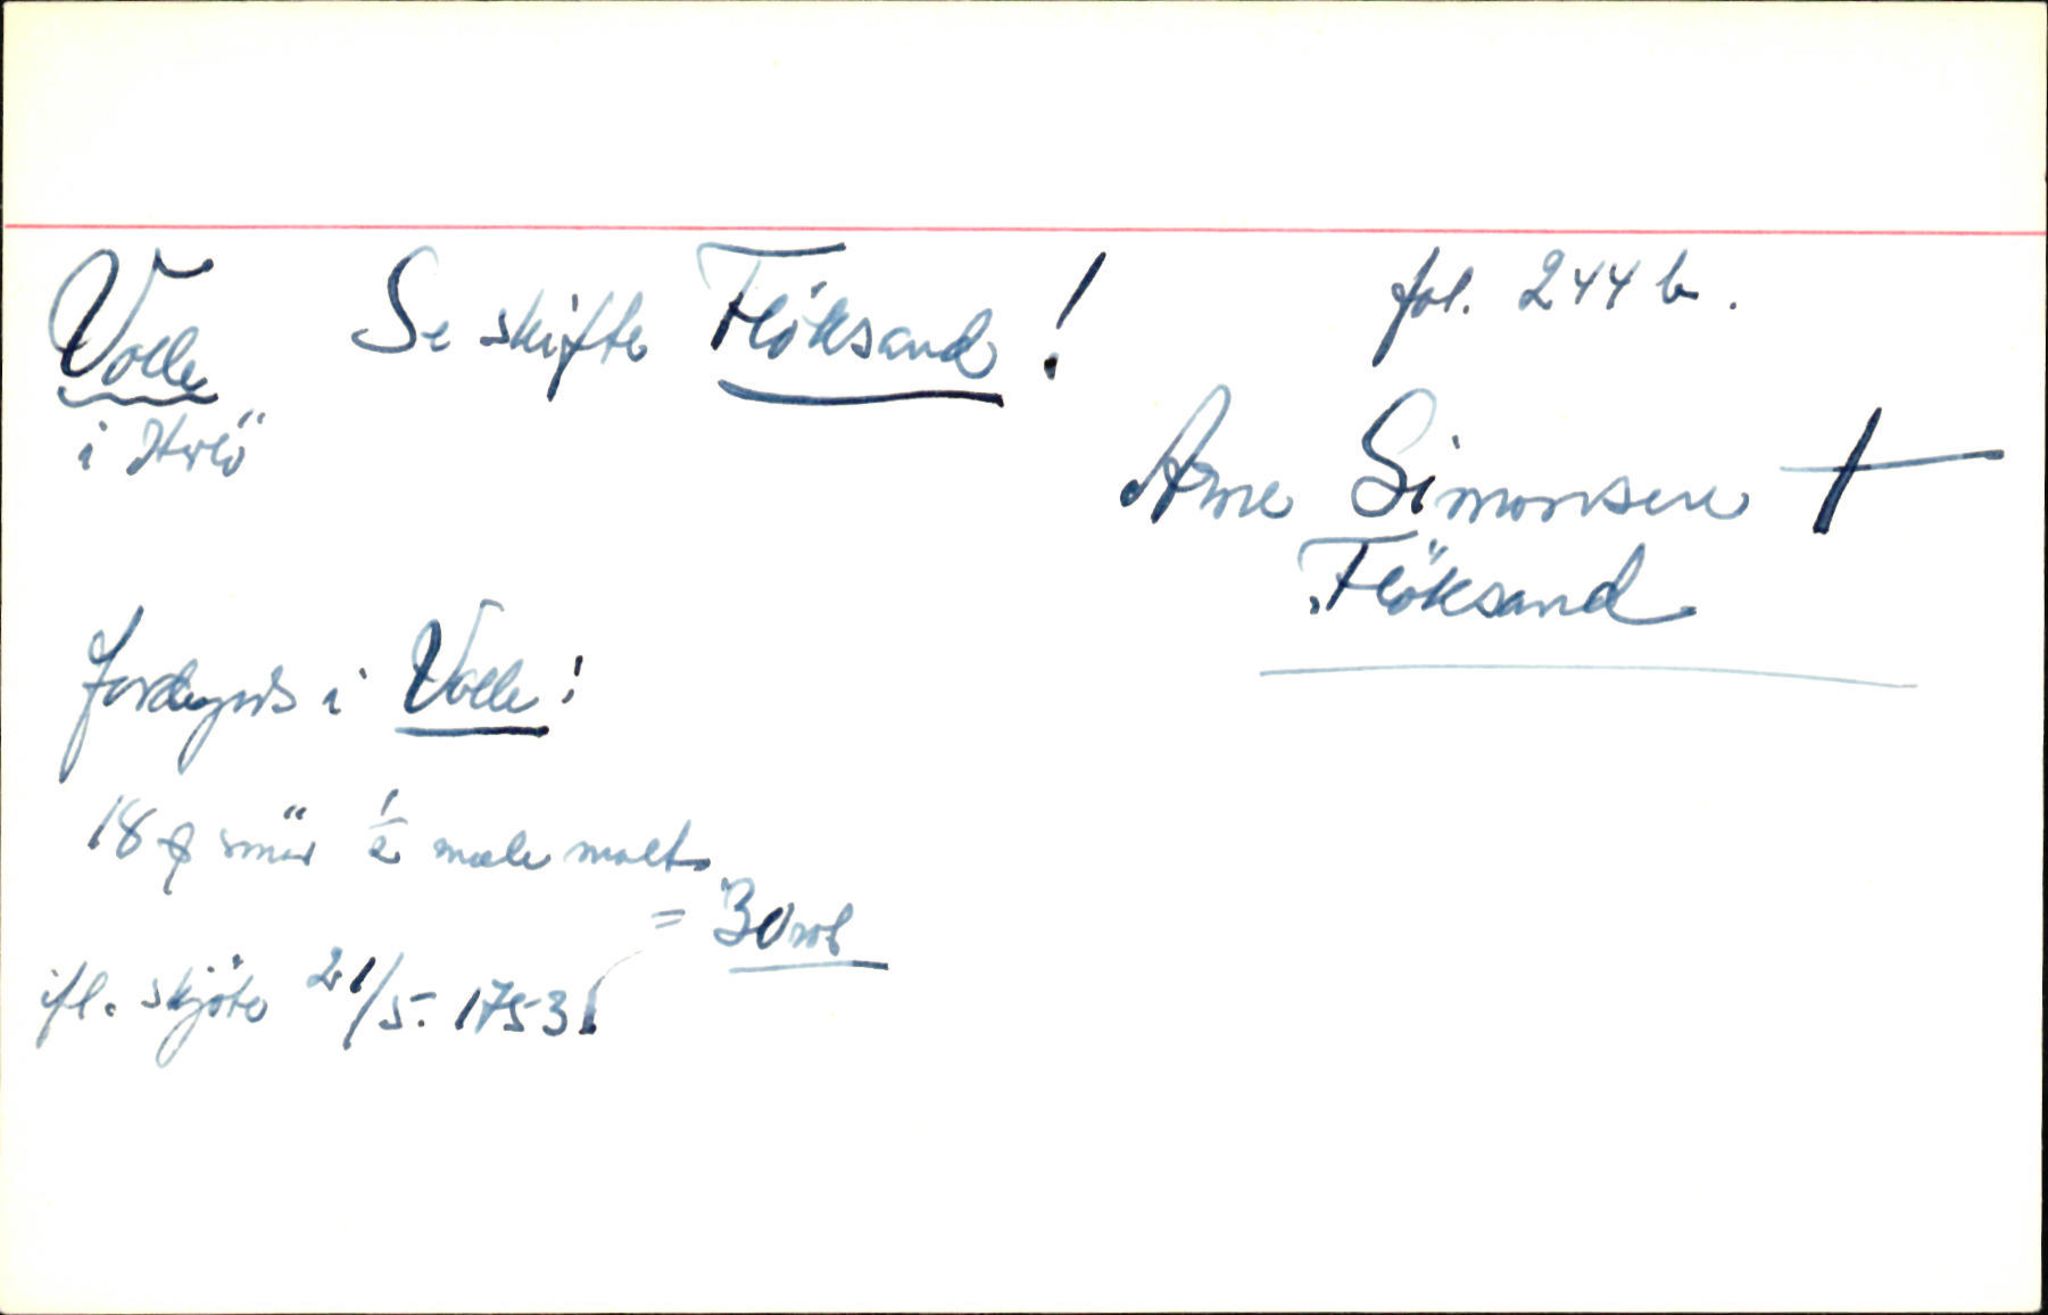 Volle Se skifte Flöksand! fol. 244 b.
i Herlö
Arne Simonsen †
Flöksand
Jordegods i Volle:
18 smör ½ mæle malt
= 30 rd
ifl. skjöte 21/5. 1753